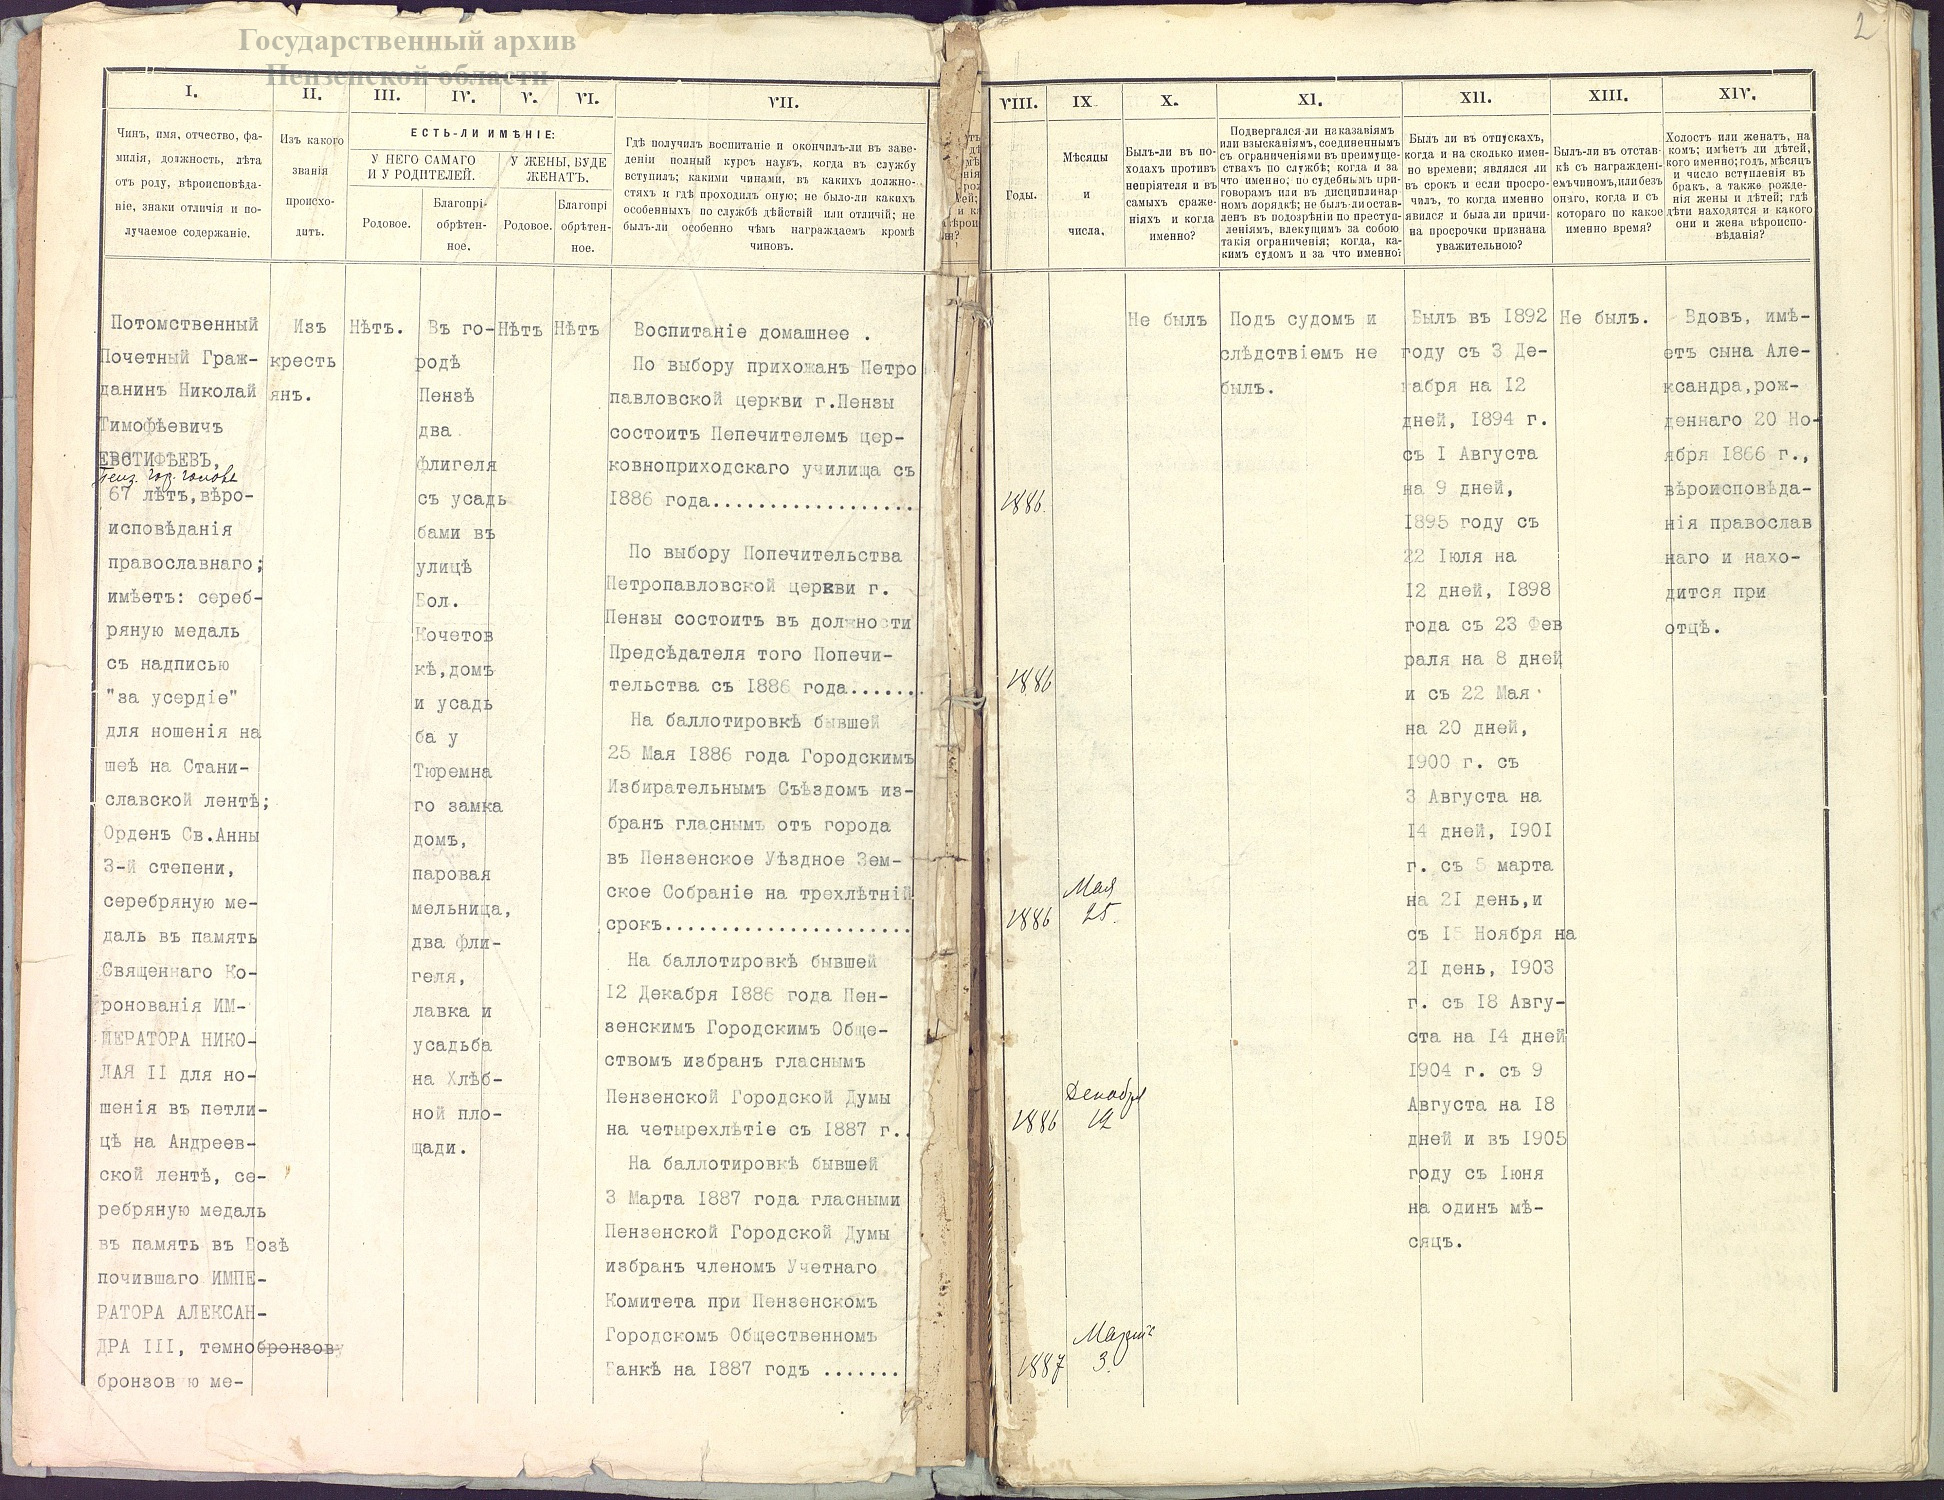 Государственный архив
Пензенской области
2
I.
Чинъ, имя, отчество, фа-
милія, должность, лѣта
отъ роду, вѣроисповѣда-
ніе, знаки отличія и по-
лучаемое содержаніе.
II.
Изъ какого
званія
происхо-
дитъ.
III.
IV.
V.
VI.
ЕСТЬ-ЛИ ИМѢНІЕ:
У НЕГО САМАГО
И У РОДИТЕЛЕЙ.
У ЖЕНЫ, БУДЕ
ЖЕНАТЪ.
Родовое.
Благопрі-
обрѣтен-
ное.
Родовое.
Благопрі
обрѣтен-
ное.
VII.
Гдѣ получилъ воспитаніе и окончилъ-ли въ заве-
деніи полный курсъ наукъ, когда въ службу
вступилъ; какими чинами, въ какихъ должно-
стяхъ и гдѣ проходилъ оную; не было-ли какихъ
особенныхъ по службѣ дѣйствій или отличій; не
былъ-ли особенно чѣмъ награждаемъ кромѣ
чиновъ.
VIII.
Годы.
IX
Мѣсяцы
и
числа.
X.
Былъ-ли въ по-
ходахъ противъ
непріятеля и въ
самыхъ сраже-
ніяхъ и когда
именно?
XI.
Подвергался-ли наказаніямъ
или взысканіямъ, соединеннымъ
съ ограниченіями въ преимуще-
ствахъ по службѣ; когда и за
что именно; по судебнымъ при-
говорамъ или въ дисциплинар-
номъ порядкѣ; не былъ-ли остав-
ленъ въ подозрѣніи по преступ-
леніямъ, влекущимъ за собою
такія ограниченія; когда, ка-
кимъ судомъ и за что именно:
XII.
Былъ ли въ отпускахъ,
когда и на сколько имен-
но времени; являлся ли
въ срокъ и если просро-
чилъ, то когда именно
явился и была ли причи-
на просрочки признана
уважительною?
XIII.
Былъ-ли въ отстав-
кѣ съ награжденi-
емъ чиномъ, или безъ
онаго, когда и съ
котораго по какое
именно время?
XIV.
Холостъ или женатъ, на
комъ; имѣетъ ли дѣтей,
кого именно; годъ, мѣсяцъ
и число вступленія въ
бракъ, а также рожде-
нія жены и дѣтей; гдѣ
дѣти находятся и какого
они и жена вѣроиспо-
вѣданія?
Потомственный
Почетный Граж-
данинъ Николай
Тимофѣевичъ
ЕВСТИФѢЕВЪ,
Пенз. гор. голова
67 лѣтъ,вѣро-
исповѣданія
православнаго;
имѣетъ: сереб-
ряную медаль
съ надписью
"за усердіе"
для ношенія на
шеѣ на Стани-
славской лентѣ;
Орденъ Св.Анны
3-й степени,
серебряную ме-
даль въ память
Священнаго Ко-
ронованія ИМ-
ПЕРАТОРА НИКО-
ЛАЯ II для но-
шенія въ петли-
цѣ на Андреев-
ской лентѣ, се-
ребряную медаль
въ память въ Бозѣ
почившаго ИМПЕ-
РАТОРА АЛЕКСАН-
ДРА III, темнобронзову
бронзовую ме-
Изъ
кресть
янъ.
Нѣтъ.
Въ го-
родѣ
Пензѣ
два
флигеля
съ усадь
бами въ
улицѣ
Бол.
Кочетов
кѣ,домъ
и усадь
ба у
Тюремна
го замка
домъ,
паровая
мельница,
два фли-
геля,
лавка и
усадьба
на Хлѣб-
ной пло-
щади.
Нѣтъ
Нѣтъ
Воспитаніе домашнее .
По выбору прихожанъ Петро
павловской церкви г.Пензы
состоитъ Пепечителемъ цер-
ковноприходскаго училища съ
1886 года..................
По выбору Попечительства
Петропавловской церкви г.
Пензы состоитъ въ должности
Предсѣдателя того Попечи-
тельства съ 1886 года.......
На баллотировкѣ бывшей
25 Мая 1886 года Городскимъ
Избирательнымъ Съѣздомъ из-
бранъ гласнымъ отъ города
въ Пензенское Уѣздное Зем-
ское Собраніе на трехлѣтній
срокъ......................
На баллотировкѣ бывшей
12 Декабря 1886 года Пен-
зенскимъ Городскимъ Обще-
ствомъ избранъ гласнымъ
Пензенской Городской Думы
на четырехлѣтіе съ 1887 г..
На баллотировкѣ бывшей
3 Марта 1887 года гласными
Пензенской Городской Думы
избранъ членомъ Учетнаго
Комитета при Пензенскомъ
Городскомъ Общественномъ
Банкѣ на 1887 годъ .......
1886.
1886
1886
Мая
25.
1886
Декабря
12
1887
Марта
3.
Не былъ
Подъ судомъ и
слѣдствіемъ не
былъ.
Былъ въ 1892
году съ 3 Де-
кабря на 12
дней, 1894 г.
съ I Августа
на 9 дней,
1895 году съ
22 Іюля на
12 дней, 1898
года съ 23 Фев
раля на 8 дней
и съ 22 Мая
на 20 дней,
1900 г. съ
3 Августа на
14 дней, 1901
г. съ 5 марта
на 21 день,и
съ 15 Ноября на
21 день, 1903
г. съ 18 Авгу-
ста на 14 дней
1904 г. съ 9
Августа на 18
дней и въ 1905
году съ Іюня
на одинъ мѣ-
сяцъ.
Не былъ.
Вдовъ, имѣ-
етъ сына Але-
ксандра,рож-
деннаго 20 Но-
ября 1866 г.,
вѣроисповѣда-
нія православ
наго и нахо-
дится при
отцѣ.